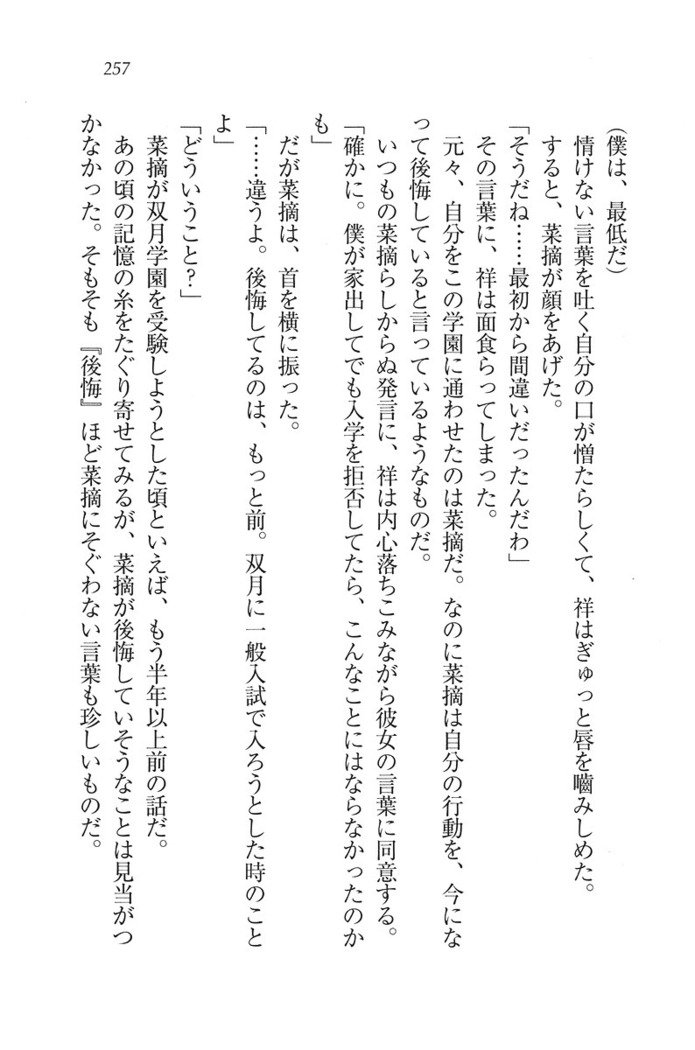 257
(僕は、最低だ)
情けない言葉を吐く自分の口が憎たらしくて、祥はぎゅっと唇を嚙みしめた。
すると、菜摘が顔をあげた。
「そうだね……最初から間違いだったんだわ」
その言葉に、祥は面食らってしまった。
元々、自分をこの学園に通わせたのは菜摘だ。なのに菜摘は自分の行動を、今にな
って後悔していると言っているようなものだ。
いつもの菜摘らしからぬ発言に、祥は内心落ちこみながら彼女の言葉に同意する。
「確かに。僕が家出してでも入学を拒否してたら、こんなことにはならなかったのか
も」
だが菜摘は、首を横に振った。
「……違うよ。後悔してるのは、もっと前。双月に一般入試で入ろうとした時のこと
よ」
「どういうこと?」
菜摘が双月学園を受験しようとした頃といえば、もう半年以上前の話だ。
あの頃の記憶の糸をたぐり寄せてみるが、菜摘が後悔していそうなことは見当がつ
かなかった。そもそも『後悔』ほど菜摘にそぐわない言葉も珍しいものだ。